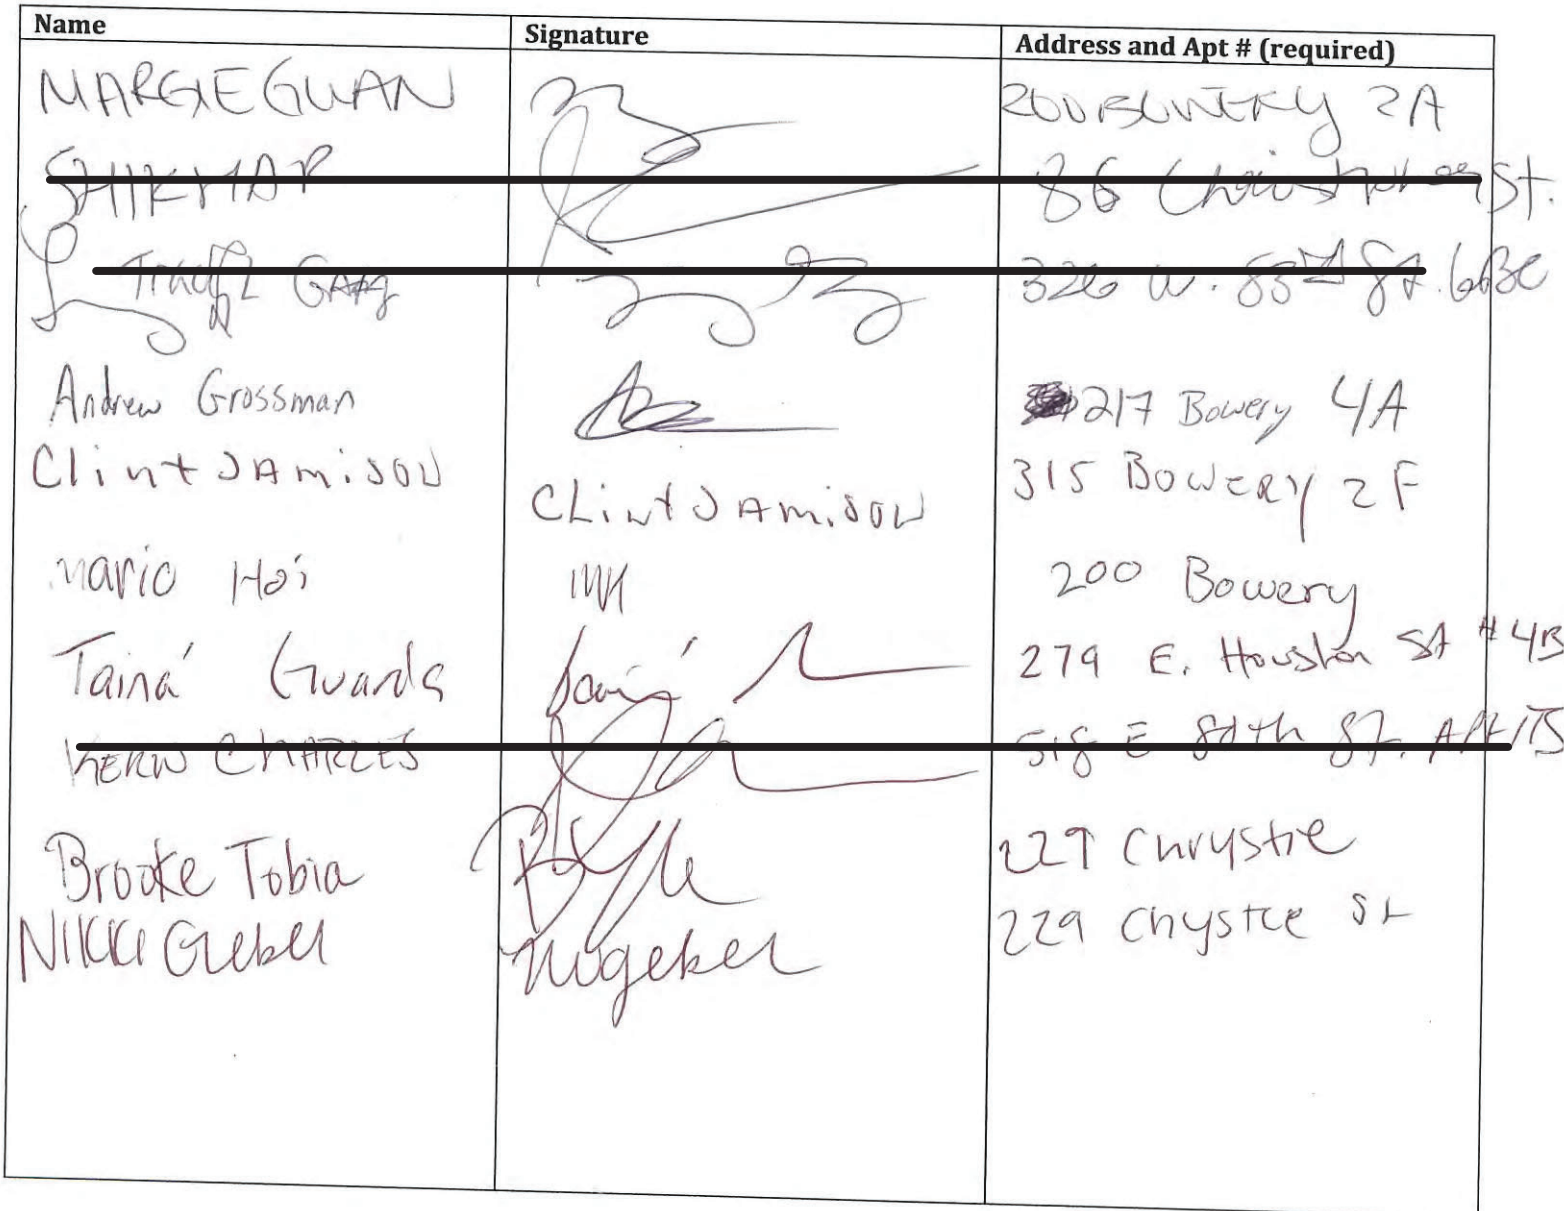 Name Signature Address and Apt # (required)
MARGIE GUAN 200 BOWERY 2A
86 Christopher St.
326 W. 83rd St. 6BC
Andrew Grossman 217 Bowery 4A
Clint JAmison CLint JAmison 315 BOWERY 2F
Mario Hoi MH 200 Bowery
Tainá Guarda Tainá 279 E. Houston St #4B
KERN CHARLES 518 E 84th St. Apt
Brooke Tobia 229 Chrystie
NIKKI Giebel 229 Chrystie St